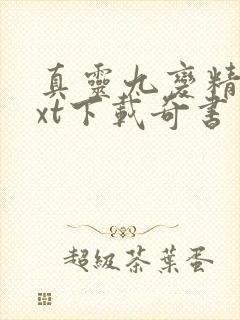 真靈九變精
xt下載奇書
超級茶葉蛋